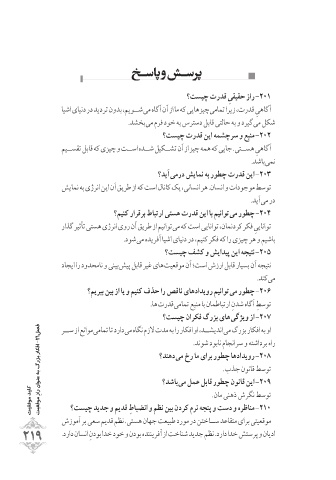 پرسش و پاسخ
۲۰۱- راز حقیقی قدرت چیست؟
آگاهی قدرت، زیرا تمامی چیزهایی که ما از آن آگاه می‌شویم، بدون تردید در دنیای اشیا
شکل می‌گیرد و به حالتی قابل دسترس به خود فرم می‌بخشد.
۲۰۲- منبع و سرچشمه این قدرت چیست؟
آگاهی هستی. جایی که همه چیز از آن تشکیل شده است و چیزی که قابل تقسیم
نمی‌باشد.
۲۰۳- این قدرت چطور به نمایش درمی‌آید؟
توسط موجودات و انسان. هر انسانی، یک کانال است که از طریق آن این انرژی به نمایش
در می‌آید.
۲۰۴- چطور می‌توانیم با این قدرت هستی ارتباط برقرار کنیم؟
توانایی فکر کردنمان، توانایی است که می‌توانیم از طریق آن روی انرژی هستی تأثیر گذار
باشیم و هر چیزی را که فکر کنیم، در دنیای اشیا آفریده می‌شود.
۲۰۵- نتیجه این پیدایش و کشف چیست؟
نتیجه آن بسیار قابل ارزش است؛ آن موقعیت‌های غیر قابل پیش‌بینی و نامحدود را ایجاد
می‌کند.
۲۰۶- چطور می‌توانیم رویدادهای ناقص را حذف کنیم و یا از بین ببریم؟
توسط آگاه شدن ارتباطمان با منبع تمامی قدرت‌ها.
۲۰۷- از ویژگی‌های بزرگ فکران چیست؟
او به افکار بزرگ می‌اندیشد. او افکار را به مدت لازم نگاه می‌دارد تا تمامی موانع از سر
راه برداشته و سرانجام نابود شوند.
۲۰۸- رویدادها چطور برای ما رخ می‌دهند؟
توسط قانون جذب.
۲۰۹- این قانون چطور قابل عمل می‌باشد؟
توسط نگرش ذهنی مان.
۲۱۰- مناظره و دست و پنجه نرم کردن بین نظم و انضباط قدیم و جدید چیست؟
موقعیتی برای متقاعد ساختن در مورد طبیعت جهان هستی. نظم قدیم سعی بر آموزش
ادیان و پرستش خدا دارد. نظم جدید شناخت از آفریننده بودن و خود خدا بودن انسان دارد.
کلید موفقیت
فصل ۲۱- افکار بزرگ به عنوان راز موفقیت
۲۱۹